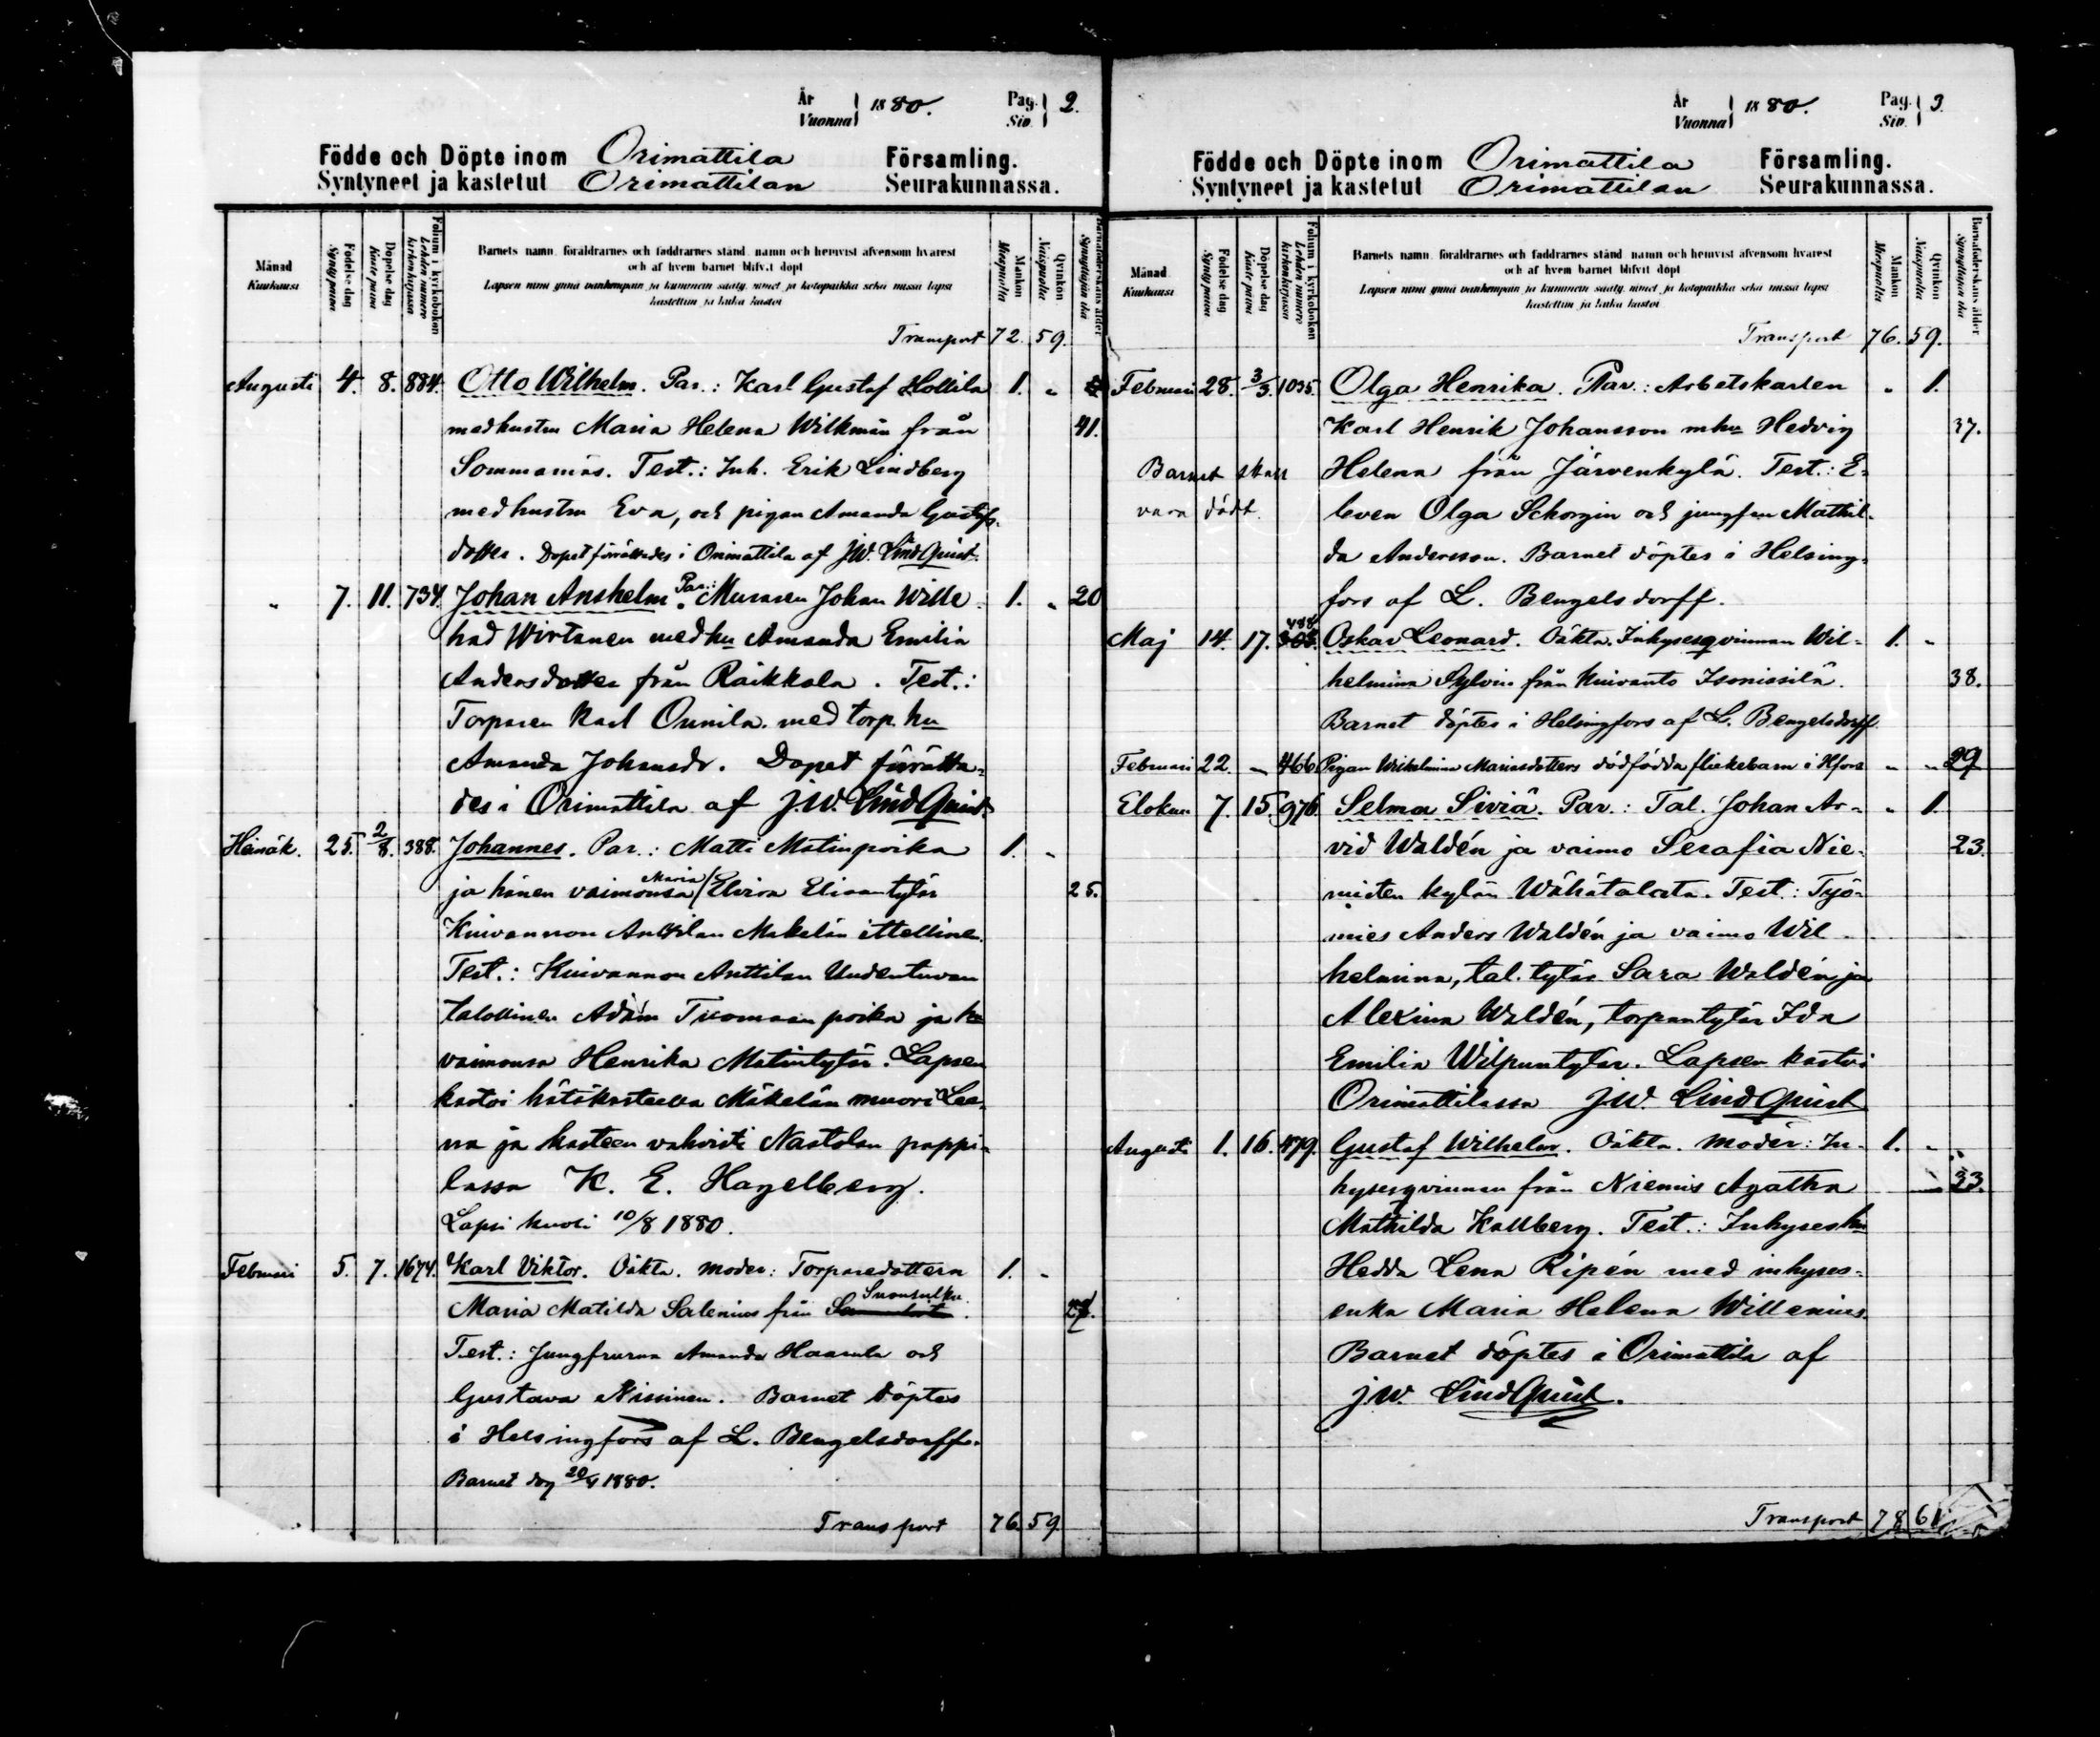 År
Vuonna } 1880.
Pag.
Siv. } 2.
Födde och Döpte inom Orimattila Församling.
Syntyneet ja kastetut Orimattilan Seurakunnassa.
Månad
Kuukausi
Födelse dag
Synty päivä
Döpelse dag
Kaste päivä
Folium i kyrkoboken
Lehden numero kirkonkirjassa
Barnets namn, föräldrarnes och faddrarnes stånd, namn och hemvist äfvensom hvarest
och af hvem barnet blifvit döpt
Lapsen nimi ynnä vanhempain ja kummein sääty, nimet ja kotopaikka sekä missä lapsi
kastettiin ja kuka kastoi
Mankön
Miespuolta
Qvinkön
Naispuolta
Barnaföderskans ålder
Synnyttäjän ikä
Transport 72. 59.
Augusti 4. 8. 884. Otto Wilhelm. Par.: Karl Gustaf Hollila 1. „
med hustru Maria Helena Wilkman från 41.
Sommarnäs. Test.: Inh. Erik Lindberg
med hustru Eva, och pigan Amanda Gustafs-
dotter. Dopet förrättades i Orimattila af J.W. LindQuist.
„ 7. 11. 734. Johan Anshelm. Par.: Muraren Johan Wille- 1. „ 20
had Wirtanen med hu Amanda Emilia
Andersdotter från Räikkola. Test.:
Torparen Karl Onnila med torp. hu
Amanda Johansdr. Dopet förrätta-
des i Orimattila af J.W. LindQuist.
Heinäk. 25. 2/8. 388. Johannes. Par.: Matti Matinpoika 1. „
ja hänen vaimonsa Maria Elvira Eliaantytär 25.
Kuivannon Anttilan Mäkelän itselline.
Test.: Kuivannon Anttilan Uudentuvan
talollinen Adam Tuomaanpoika ja hn
vaimonsa Henrika Matintytär. Lapsen
kastoi hätäkasteella Mäkelän muori Lee-
na ja kasteen vahvisti Nastolan pappi-
lassa K. E. Hagelberg.
Lapsi kuoli 10/8 1880.
Februari 5. 7. 1674. Karl Viktor. Oäkta. Moder: Torparedottern 1. „
Maria Matilda Salenius från Suonsulku. 27.
Test.: Jungfrurna Amanda Haarala och
Gustava Nissinen. Barnet döptes
i Helsingfors af L. Bengelsdorff.
Barnet dog 20/4 1880.
Transport 76. 59.
År
Vuonna } 1880.
Pag.
Siv. } 3.
Födde och Döpte inom Orimattila Församling.
Syntyneet ja kastetut Orimattilan Seurakunnassa.
Månad
Kuukausi
Födelse dag
Synty päivä
Döpelse dag
Kaste päivä
Folium i kyrkoboken
Lehden numero kirkonkirjassa
Barnets namn, föräldrarnes och faddrarnes stånd, namn och hemvist äfvensom hvarest
och af hvem barnet blifvit döpt
Lapsen nimi ynnä vanhempain ja kummein sääty, nimet ja kotopaikka sekä missä lapsi
kastettiin ja kuka kastoi
Mankön
Miespuolta
Qvinkön
Naispuolta
Barnaföderskans ålder
Synnyttäjän ikä
Transport 76. 59.
Februari 28. 3/3. 1035. Olga Henrika. Par.: Arbetskarlen „ 1.
Karl Henrik Johansson m hu Hedvig 37.
Barnet skall Helena från Järvenkylä. Test.: E-
vara dödt. leven Olga Schorgin och jungfru Mathil-
da Andersson. Barnet döptes i Helsing-
fors af L. Bengelsdorff.
488
Maj 14. 17. 308. Oskar Leonard. Oäkta. Inhysesqvinnan Wil- 1. „
helmina Sylvin från Kuivanto Isoniasilä. 38.
Barnet döptes i Helsingfors af L. Bengelsdorff.
Februari 22. „ 466 Pigan Wilhelmina Mariasdotters dödfödda flickebarn i Hfors „ „ 29
Elokuu 7. 15. 976. Selma Siviä. Par.: Tal. Johan Ar- „ 1.
vid Waldén ja vaimo Serafia Nie- 23.
misten kylän Wähätalata. Test.: Työ-
mies Anders Waldén ja vaimo Wil-
helmina, tal. tytär Sara Waldén ja
Alexina Waldén, torpantytär Ida
Emilia Wilpuntytär. Lapsen kastoi
Orimattilassa J.W. LindQuist
Augusti 1. 16. 479. Gustaf Wilhelm. Oäkta. Moder: In- 1. „
hysesqvinnan från Niemis Agatha 33.
Mathilda Kallberg. Test.: Inhyseshu
Hedda Lena Ripén med inhyses-
enka Maria Helena Willenius.
Barnet döptes i Orimattila af
J.W. LindQuist.
Transport 78 61